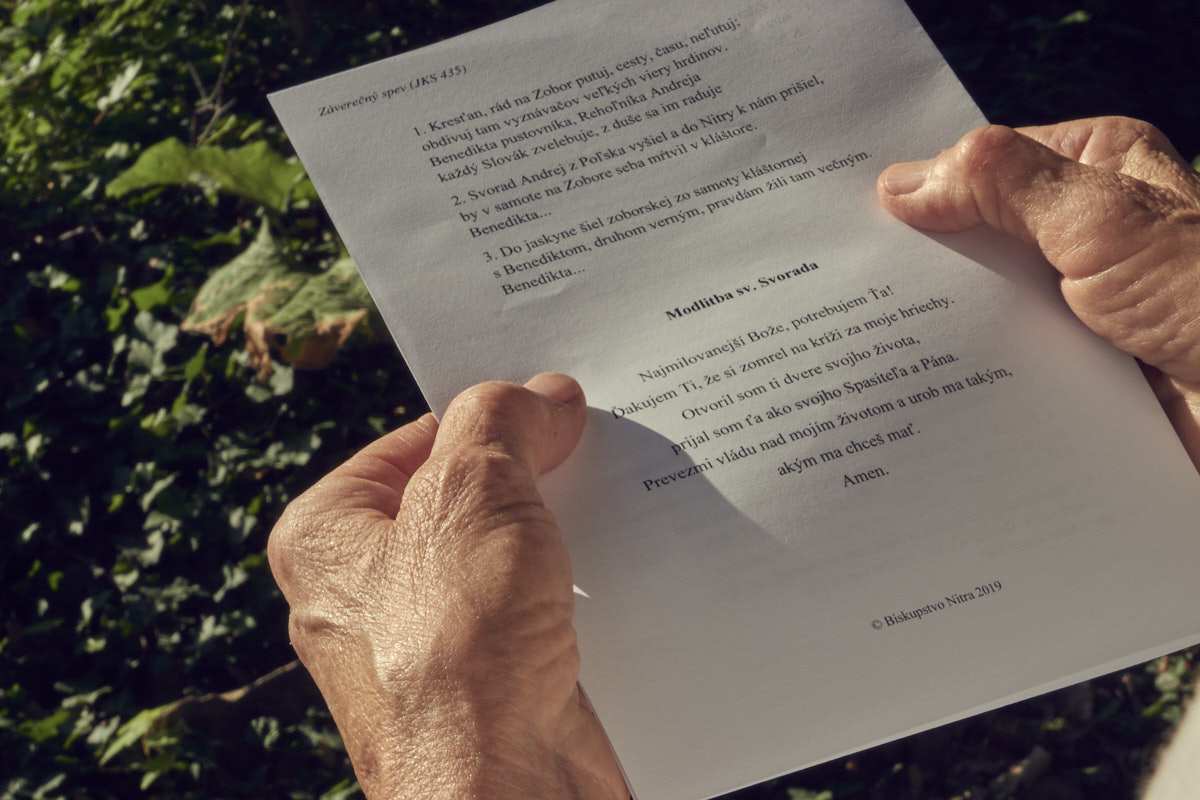 Záverečný spev (JKS 435)
1. Kresťan, rád na Zobor putuj, cesty, času, neľutuj;
obdivuj tam vyznávačov veľkých viery hrdinov.
Benedikta pustovníka, Rehoľníka Andreja
každý Slovák zvelebuje, z duše sa im raduje
2. Svorad Andrej z Poľska vyšiel a do Nitry k nám prišiel,
by v samote na Zobore seba mŕtvil v kláštore.
Benedikta...
3. Do jaskyne šiel zoborskej zo samoty kláštornej
s Benediktom, druhom verným, pravdám žili tam večným.
Benedikta...
Modlitba sv. Svorada
Najmilovanejší Bože, potrebujem Ťa!
Ďakujem Ti, že si zomrel na kríži za moje hriechy.
Otvoril som ti dvere svojho života,
prijal som ťa ako svojho Spasiteľa a Pána.
Prevezmi vládu nad mojím životom a urob ma takým,
akým ma chceš mať.
Amen.
© Biskupstvo Nitra 2019